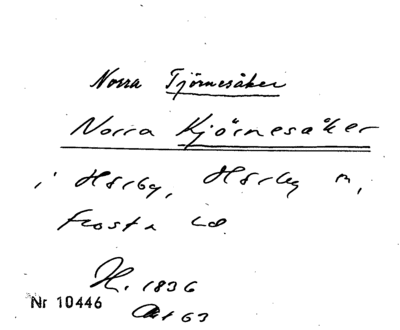 Norra Tjörnesåker
Norra Kjörnesåker
i Hörby, Hörby sn,
Frosta hd
H. 1836
Nr 10446
63